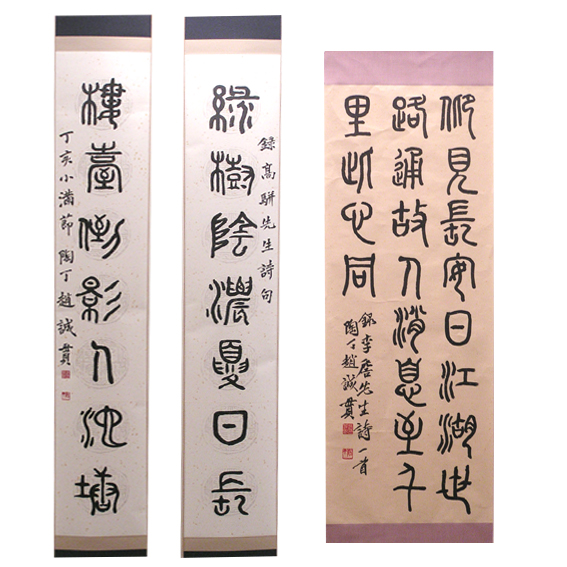 仰見長安日江湖世
路通故人消息至千
里此心同
錄李詹先生詩一首
陶丁趙誠貫
錄高駢先生詩句
綠樹陰濃夏日長
樓臺倒影入池塘
丁亥小滿節陶丁趙誠貫